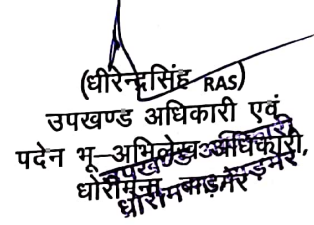 (धीरेन्द्रसिंह RAS)
उपखण्ड अधिकारी एवं
पदेन भू–अभिलेख अधिकारी,
धोरीमन्ना, बाड़मेर
उपखण्ड अधिकारी